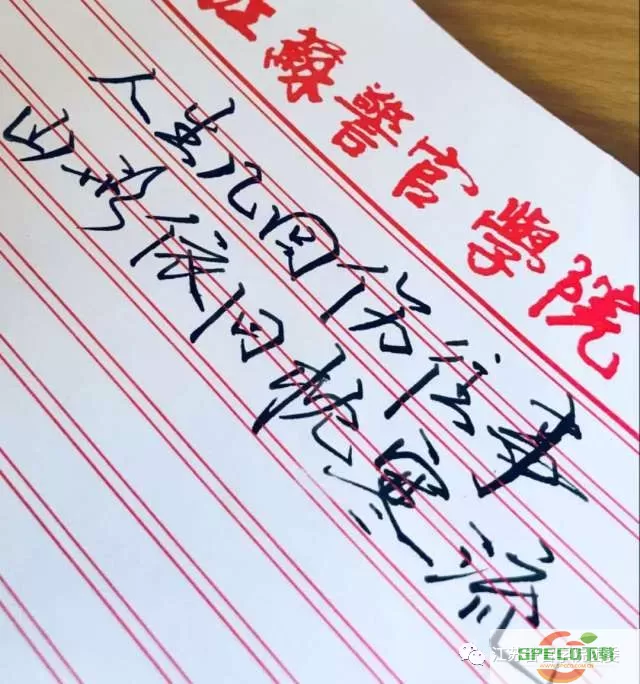 江蘇警官學院
人生几回伤往事
山形依旧枕寒流
SPECO下载
江苏